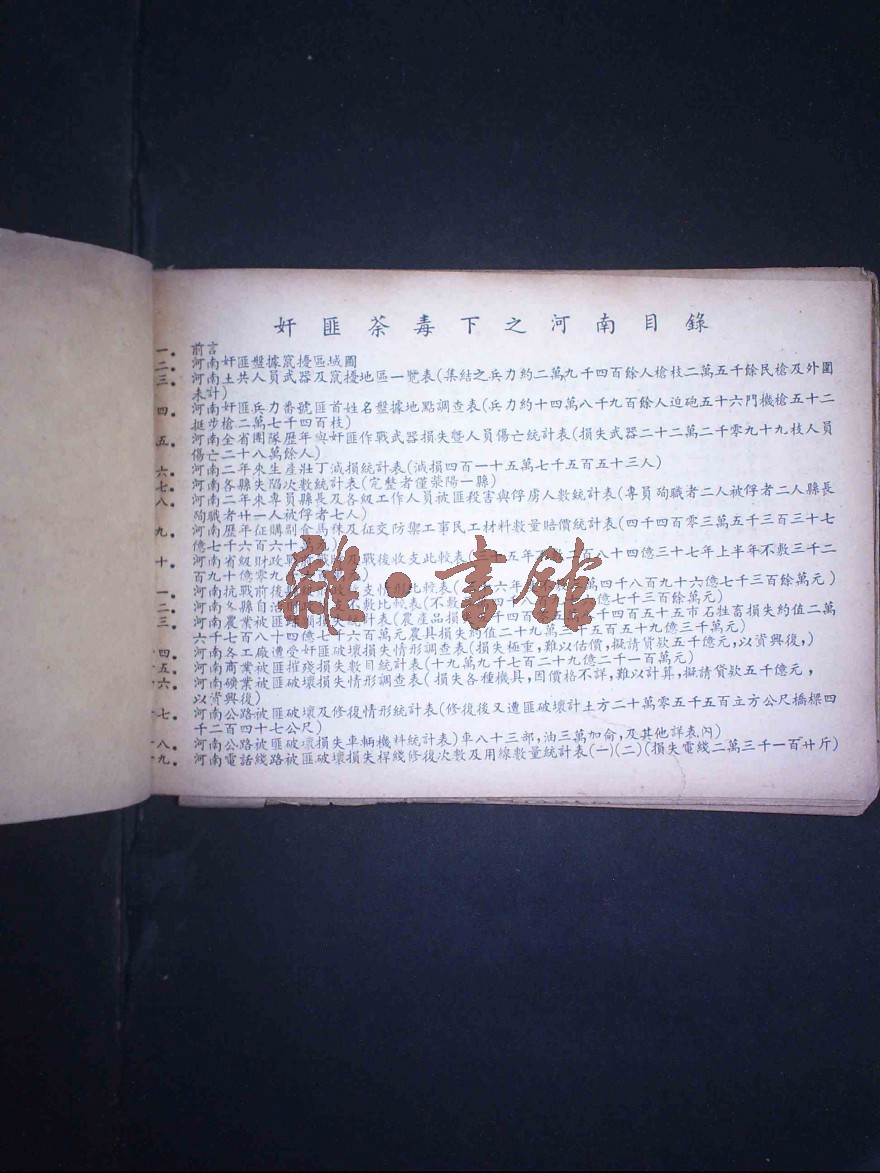 奸匪荼毒下之河南目錄
一. 前言
二. 河南奸匪盤據竄擾區域圖
三. 河南土共人員武器及竄擾地區一覽表(集結之兵力約二萬九千四百餘人槍枝二萬五千餘民槍及外圍
未計)
四. 河南奸匪兵力番號匪首姓名盤據地點調查表(兵力約十四萬八千九百餘人迫砲五十六門機槍五十二
挺步槍二萬七千四百枝)
五. 河南全省團隊歷年與奸匪作戰武器損失暨人員傷亡統計表(損失武器二十二萬二千零九十九枝人員
傷亡二十八萬餘人)
六. 河南二年來生產壯丁減損統計表(減損四百一十五萬七千五百五十三人)
七. 河南各縣失陷次數統計表(完整者僅滎陽一縣)
八. 河南二年來專員縣長及各級工作人員被匪殺害與俘虜人數統計表(專員殉職者二人被俘者二人縣長
殉職者廿一人被俘者七人)
九. 河南歷年征購副食馬秣及征交防禦工事民工材料數量賠價統計表(四千四百零三萬五千三百三十七
億七千六百六十萬
十. 河南省級財政戰 及戰後收支比較表( 十五年 二百八十四億三十七年上半年不敷三千二
百九十億零九
一. 河南抗戰前後 支情形比較表( 六年 萬四千八百九十六億七千三百餘萬元)
二. 河南各縣自治 不敷比較表(不敷 億七千三百餘萬元)
三. 河南農業被匪 損失統計表(農產品損 四百 千四百五十五市石牲畜損失約值二萬
六千七百八十四億七千六百萬元農具損失約值二十九萬三千五百五十九億三千萬元)
四. 河南各工廠遭受奸匪破壞損失情形調查表(損失極重,難以估價,擬請貸款五千億元,以資興復,)
五. 河南商業被匪摧殘損失數目統計表(十九萬九千七百二十九億二千一百萬元)
六. 河南礦業被匪破壞損失情形調查表(損失各種機具,因價格不詳,難以計算,擬請貸款五千億元,
以資興復)
七. 河南公路被匪破壞及修復情形統計表(修復後又遭匪破壞計土方二十萬零五千五百立方公尺橋樑四
千二百四十七公尺)
八. 河南公路被匪破壞損失車輛機料統計表)車八十三部,油三萬加侖,及其他詳表內)
九. 河南電話綫路被匪破壞損失桿綫修復次數及用線數量統計表(一)(二)(損失電綫二萬三千一百廿斤)
雜·書館